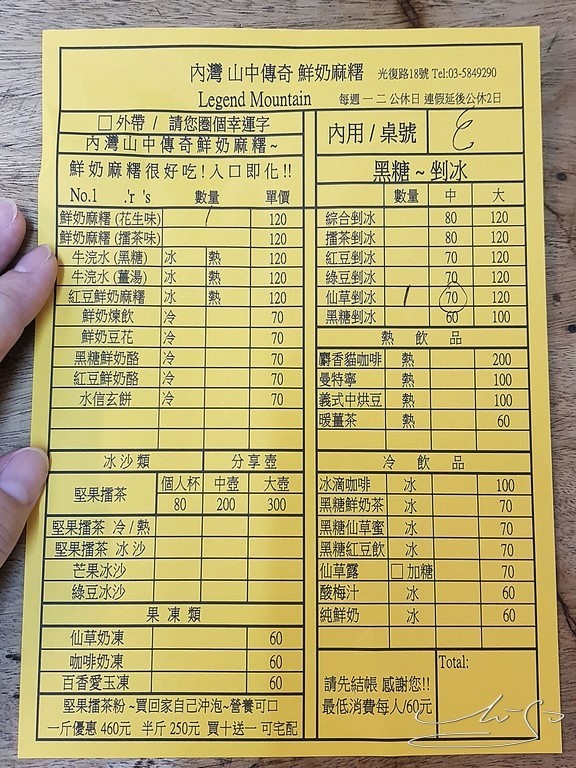 內灣 山中傳奇 鮮奶麻糬 光復路18號 Tel:03-5849290
Legend Mountain 每週一 二 公休日 連假延後公休2日
□外帶 / 請您圈個幸運字
內灣山中傳奇鮮奶麻糬~
鮮奶麻糬很好吃!入口即化!!
No.1 .'r 's 數量 單價
鮮奶麻糬(花生味) 1 120
鮮奶麻糬(擂茶味) 120
牛浣水(黑糖) 冰 熱 120
牛浣水(薑湯) 冰 熱 120
紅豆鮮奶麻糬 冰 熱 120
鮮奶煉飲 冷 70
鮮奶豆花 冷 70
黑糖鮮奶酪 冷 70
紅豆鮮奶酪 冷 70
水信玄餅 冷 70
冰沙類 分享壺
堅果擂茶 個人杯 中壺 大壺
80 200 300
堅果擂茶 冷/熱
堅果擂茶 冰沙
芒果冰沙
綠豆冰沙
果凍類
仙草奶凍 60
咖啡奶凍 60
百香愛玉凍 60
堅果擂茶粉~買回家自己沖泡~營養可口
一斤優惠 460元 半斤 250元 買十送一 可宅配
內用 / 桌號
黑糖~剉冰
數量 中 大
綜合剉冰 80 120
擂茶剉冰 80 120
紅豆剉冰 70 120
綠豆剉冰 70 120
仙草剉冰 1 70 120
黑糖剉冰 60 100
熱飲品
麝香貓咖啡 熱 200
曼特寧 熱 100
義式中烘豆 熱 100
暖薑茶 熱 60
冷飲品
冰滴咖啡 冰 100
黑糖鮮奶茶 冰 70
黑糖仙草蜜 冰 70
黑糖紅豆飲 冰 70
仙草露 □加糖 70
酸梅汁 冰 60
純鮮奶 冰 60
請先結帳 感謝您!!
最低消費每人/60元
Total: